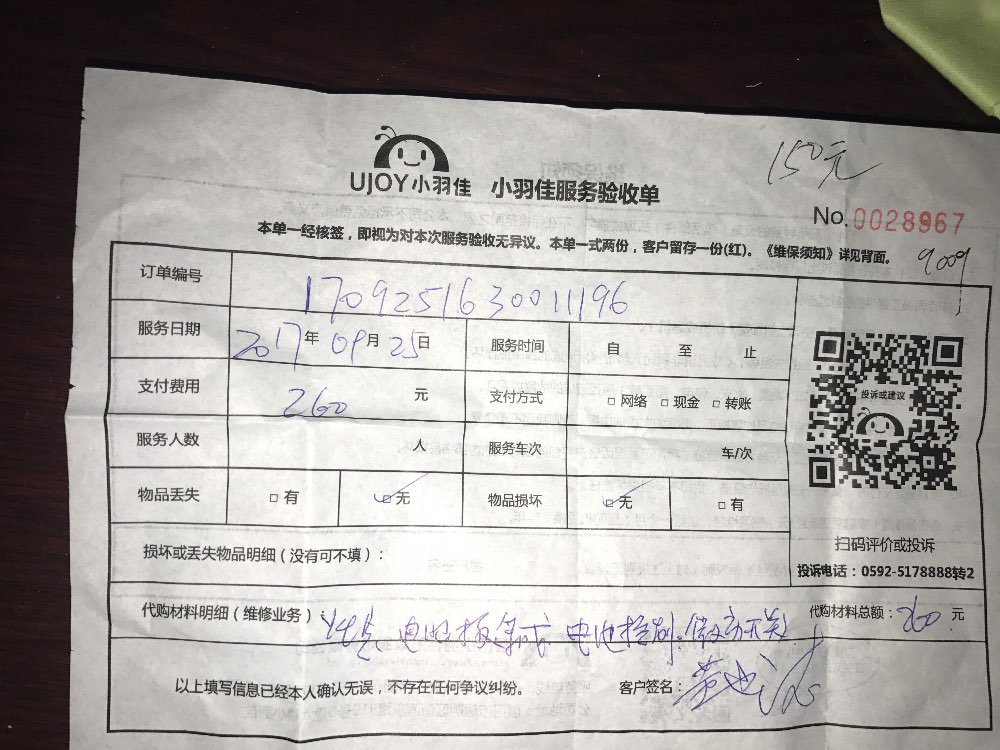 150元
UJOY小羽佳 小羽佳服务验收单
No.0028967
本单一经核签，即视为对本次服务验收无异议。本单一式两份，客户留存一份(红)。《维保须知》详见背面。
9009
订单编号 1709251630011196
服务日期 2017年09月25日 服务时间 自 至 止
支付费用 260 元 支付方式 □网络 □现金 □转账
投诉或建议
服务人数 人 服务车次 车/次
物品丢失 □有 □无 物品损坏 □无 □有
扫码评价或投诉
损坏或丢失物品明细（没有可不填）：
投诉电话：0592-5178888转2
代购材料明细（维修业务）： 电池 电池控制 微动开关 代购材料总额：260元
以上填写信息已经本人确认无误，不存在任何争议纠纷。 客户签名：